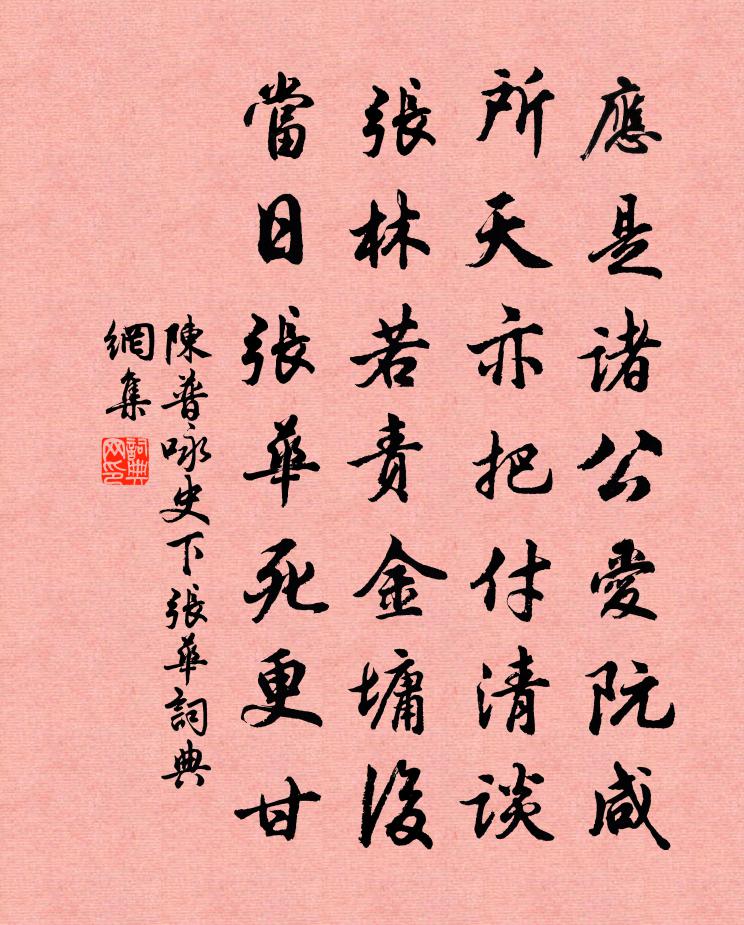 應是諸公愛阮咸
所天亦把付清談
張林若責金墉後
當日張華死更甘
陳普咏史下張華詞典
網集
詞典
网印